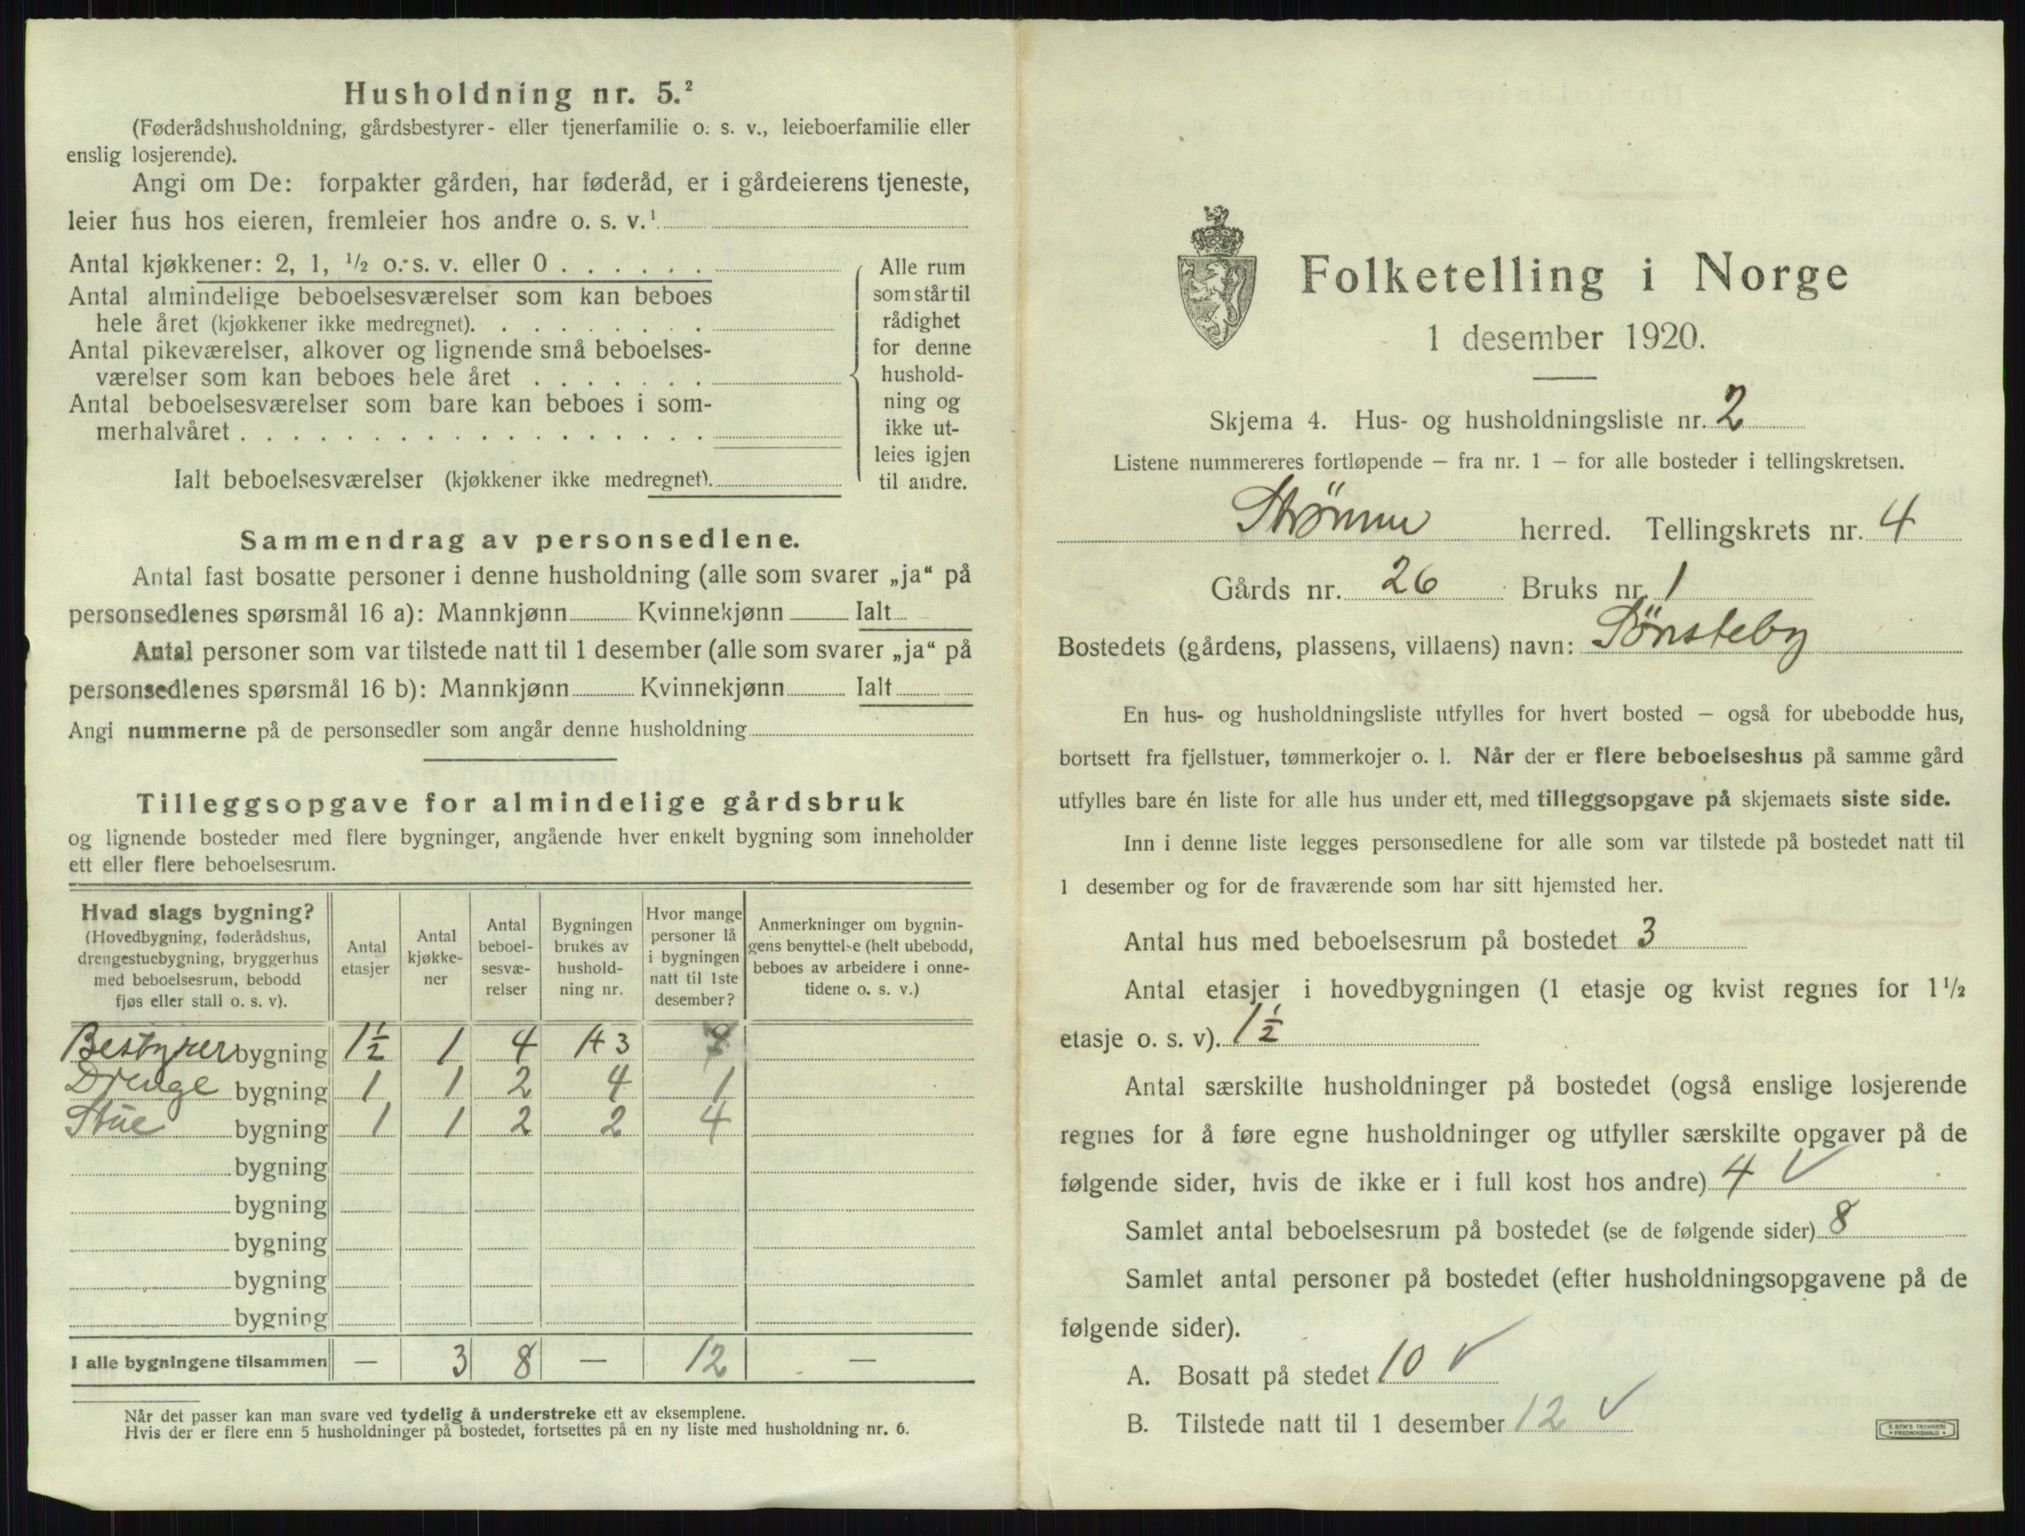 Husholdning nr. 5.²
(Føderådshusholdning, gårdsbestyrer- eller tjenerfamilie o. s. v., leieboerfamilie eller
enslig losjerende).
Angi om De: forpakter gården, har føderåd, er i gårdeierens tjeneste,
leier hus hos eieren, fremleier hos andre o. s. v.¹
Antal kjøkkener: 2, 1, ½ o. s. v. eller 0 . . . . . .
Antal almindelige beboelsesværelser som kan beboes
hele året (kjøkkener ikke medregnet). . . . . . . . .
Antal pikeværelser, alkover og lignende små beboelses-
værelser som kan beboes hele året . . . . . . .
Antal beboelsesværelser som bare kan beboes i som-
merhalvåret . . . . . . . . . . . . . . . . . .
Ialt beboelsesværelser (kjøkkener ikke medregnet).
Alle rum
som står til
rådighet
for denne
hushold-
ning og
ikke ut-
leies igjen
til andre.
Sammendrag av personsedlene.
Antal fast bosatte personer i denne husholdning (alle som svarer „ja“ på
personsedlenes spørsmål 16 a): Mannkjønn Kvinnekjønn Ialt
Antal personer som var tilstede natt til 1 desember (alle som svarer „ja“ på
personsedlenes spørsmål 16 b): Mannkjønn Kvinnekjønn Ialt
Angi nummerne på de personsedler som angår denne husholdning
Tilleggsopgave for almindelige gårdsbruk
og lignende bosteder med flere bygninger, angående hver enkelt bygning som inneholder
ett eller flere beboelsesrum.
Hvad slags bygning?
(Hovedbygning, føderådshus,
drengestuebygning, bryggerhus
med beboelsesrum, bebodd
fjøs eller stall o. s. v).
Antal
etasjer
Antal
kjøkke-
ner
Antal
beboel-
sesvæ-
relser
Bygningen
brukes av
hushold-
ning nr.
Hvor mange
personer lå
i bygningen
natt til 1ste
desember?
Anmerkninger om bygnin-
gens benyttelse (helt ubebodd,
beboes av arbeidere i onne-
tidene o. s. v.)
Bestyrer bygning 1½ 1 4 1+3
Drenge bygning 1 1 2 4 1
Stue bygning 1 1 2 2 4
bygning
bygning
bygning
bygning
bygning
I alle bygningene tilsammen — 3 8 — 12 —
Når det passer kan man svare ved tydelig å understreke ett av eksemplene.
Hvis der er flere enn 5 husholdninger på bostedet, fortsettes på en ny liste med husholdning nr. 6.
Folketelling i Norge
1 desember 1920.
Skjema 4. Hus- og husholdningsliste nr. 2
Listene nummereres fortløpende — fra nr. 1 — for alle bosteder i tellingskretsen.
Strømm herred. Tellingskrets nr. 4
Gårds nr. 26 Bruks nr. 1
Bostedets (gårdens, plassens, villaens) navn: Sønsteby
En hus- og husholdningsliste utfylles for hvert bosted — også for ubebodde hus,
bortsett fra fjellstuer, tømmerkojer o. l. Når der er flere beboelseshus på samme gård
utfylles bare én liste for alle hus under ett, med tilleggsopgave på skjemaets siste side.
Inn i denne liste legges personsedlene for alle som var tilstede på bostedet natt til
1 desember og for de fraværende som har sitt hjemsted her.
Antal hus med beboelsesrum på bostedet 3
Antal etasjer i hovedbygningen (1 etasje og kvist regnes for 1½
etasje o. s. v). 1½
Antal særskilte husholdninger på bostedet (også enslige losjerende
regnes for å føre egne husholdninger og utfyller særskilte opgaver på de
følgende sider, hvis de ikke er i full kost hos andre) 4 ✓
Samlet antal beboelsesrum på bostedet (se de følgende sider) 8
Samlet antal personer på bostedet (efter husholdningsopgavene på de
følgende sider).
A. Bosatt på stedet 10 ✓
B. Tilstede natt til 1 desember 12 ✓
E. SEM'S TRYKKERI
FREDRIKSHALD